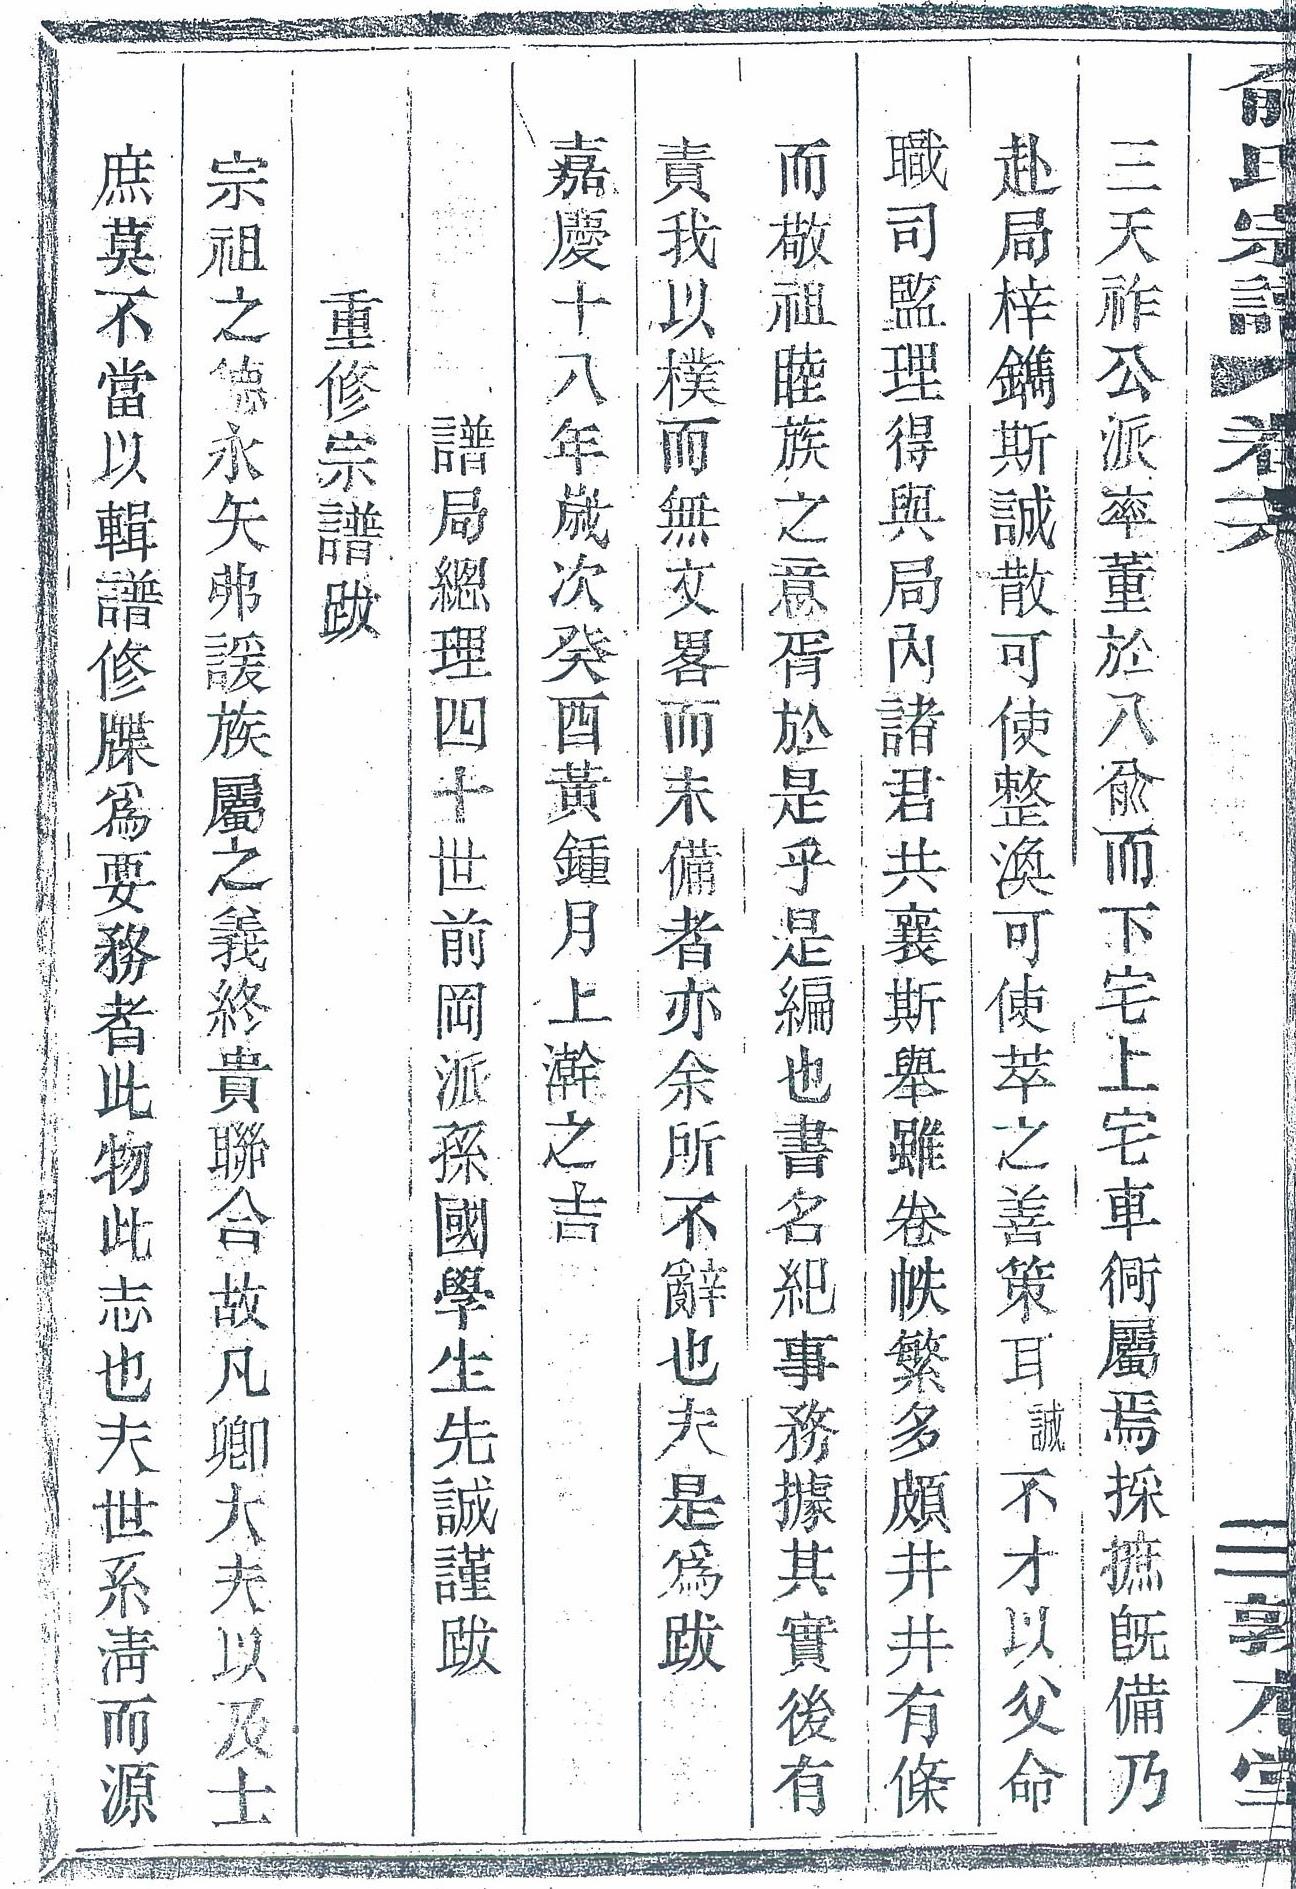 俞氏宗譜 卷六 三 敦本堂
三天祚公派率董於八俞而下宅上宅車衕屬焉採摭旣備乃
赴局梓鐫斯誠散可使整渙可使萃之善策耳誠不才以父命
職司監理得與局內諸君共襄斯舉雖卷帙繁多頗井井有條
而敬祖睦族之意胥於是乎是編也書名紀事務據其實後有
責我以樸而無文畧而未備者亦余所不辭也夫是爲跋
嘉慶十八年歲次癸酉黃鍾月上澣之吉
譜局總理四十世前岡派孫國學生先誠謹跋
重修宗譜跋
宗祖之德永矢弗諼族屬之義終貴聯合故凡卿大夫以及士
庶莫不當以輯譜修牒爲要務者此物此志也夫世系淸而源